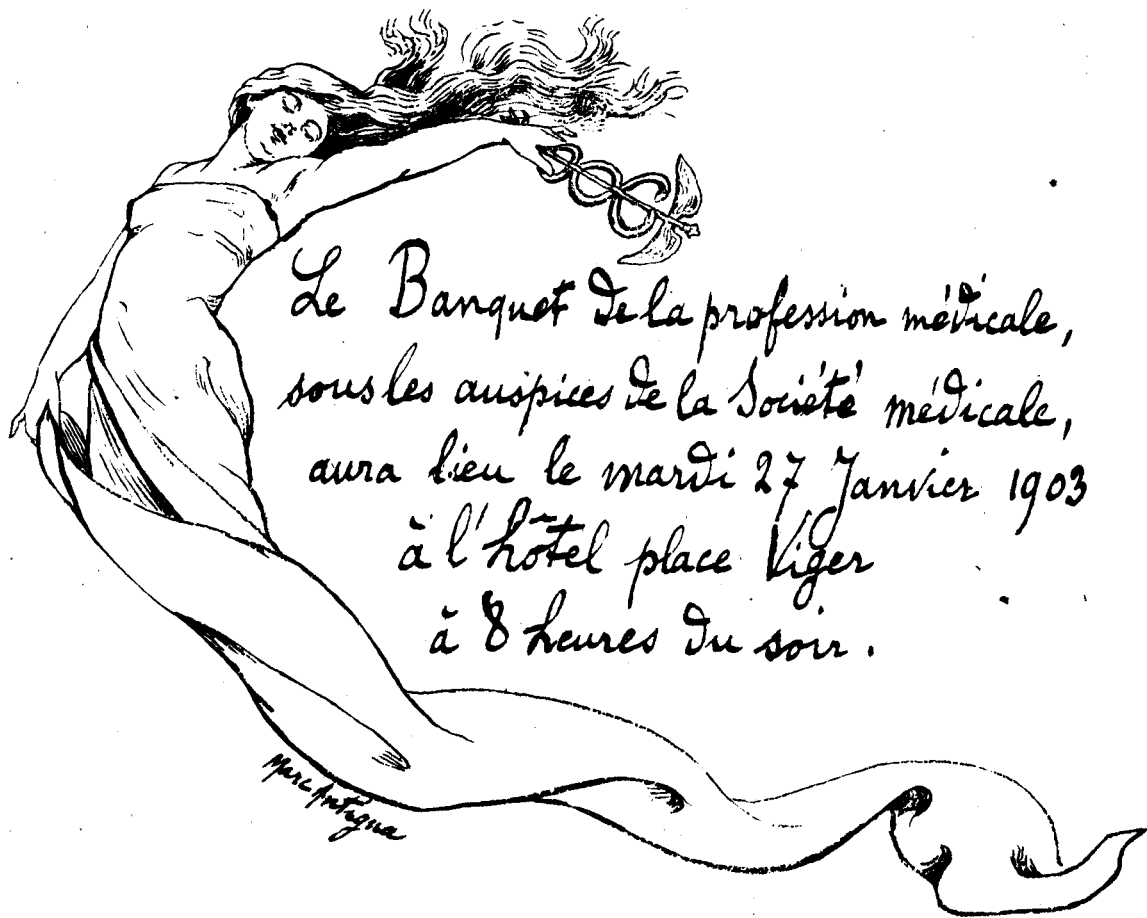 Le Banquet de la profession médicale,
sous les auspices de la Société médicale,
aura lieu le mardi 27 Janvier 1903
à l'hôtel place Viger
à 8 heures du soir.
Marc Antigna